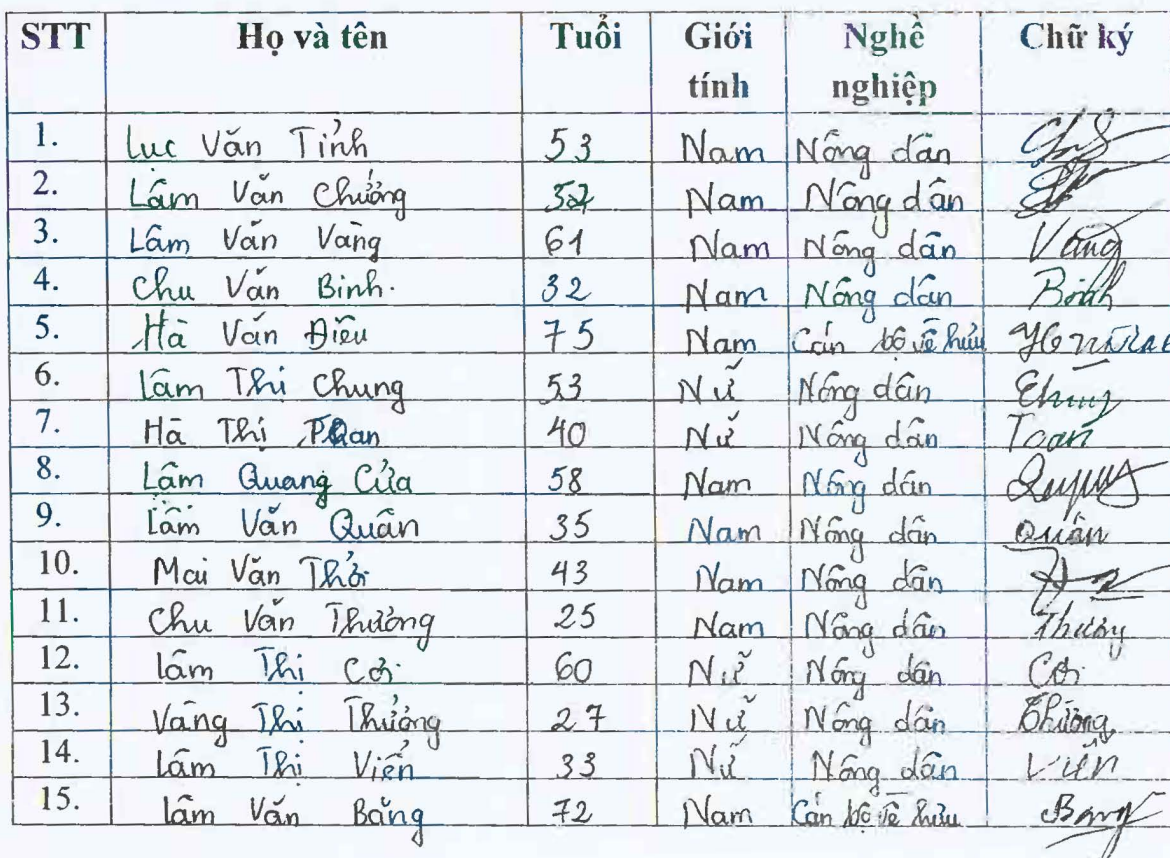 STT Họ và tên Tuổi Giới tính Nghề nghiệp Chữ ký
1. Lục Văn Tỉnh 53 Nam Nông dân
2. Lâm Văn Chưởng Nam Nông dân
3. Lâm Văn Vàng 61 Nam Nông dân Vàng
4. Chu Văn Binh. 32 Nam Nông dân Binh
5. Hà Văn Điều 75 Nam Cán bộ về hưu
6. Lâm Thị Chung 53 Nữ Nông dân Chung
7. Hà Thị 40 Nữ Nông dân Toan
8. Lâm Quang Cửa 58 Nam Nông dân
9. Lâm Văn Quân 35 Nam Nông dân Quân
10. Mai Văn Thời 43 Nam Nông dân
11. Chu Văn Thường 25 Nam Nông dân Thường
12. Lâm Thị Cơi 60 Nữ Nông dân Cơi
13. Vàng Thị Thưởng 27 Nữ Nông dân Thưởng
14. Lâm Thị Viển 33 Nữ Nông dân Viển
15. Lâm Văn Bằng 72 Nam Cán bộ về hưu Bằng